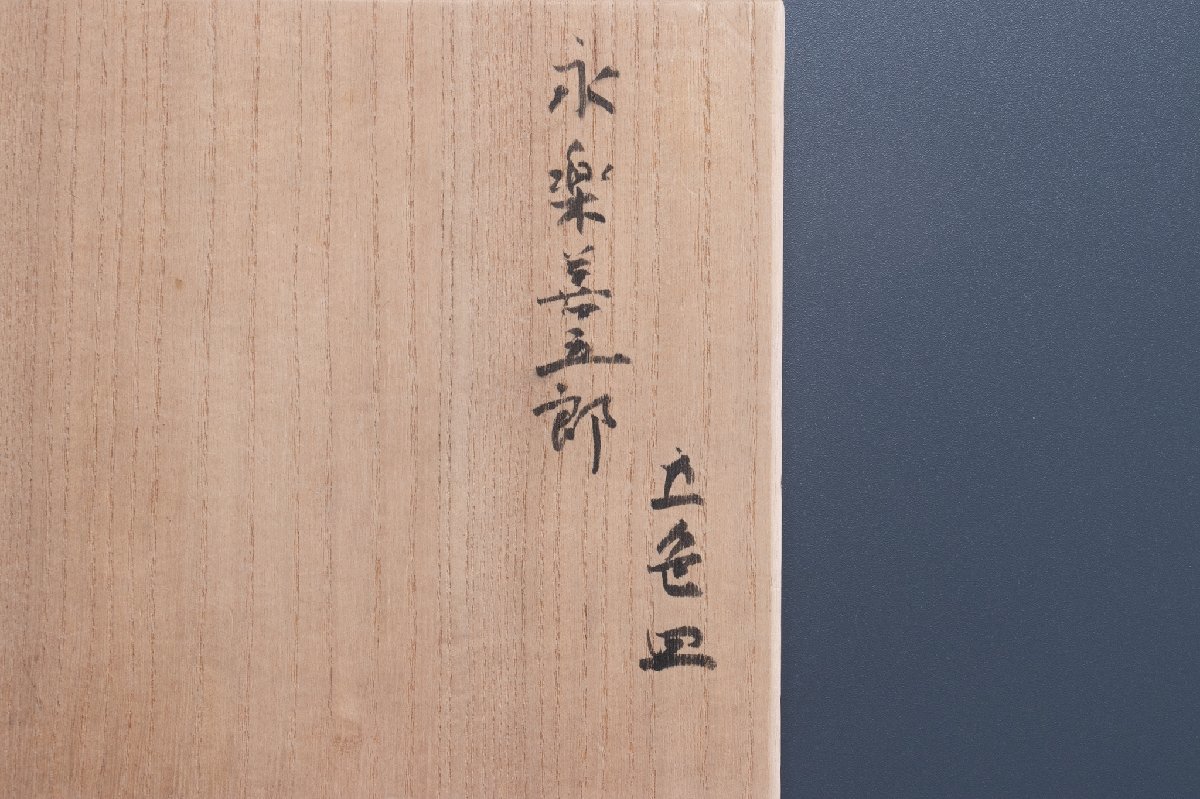 五色皿
永楽善五郎